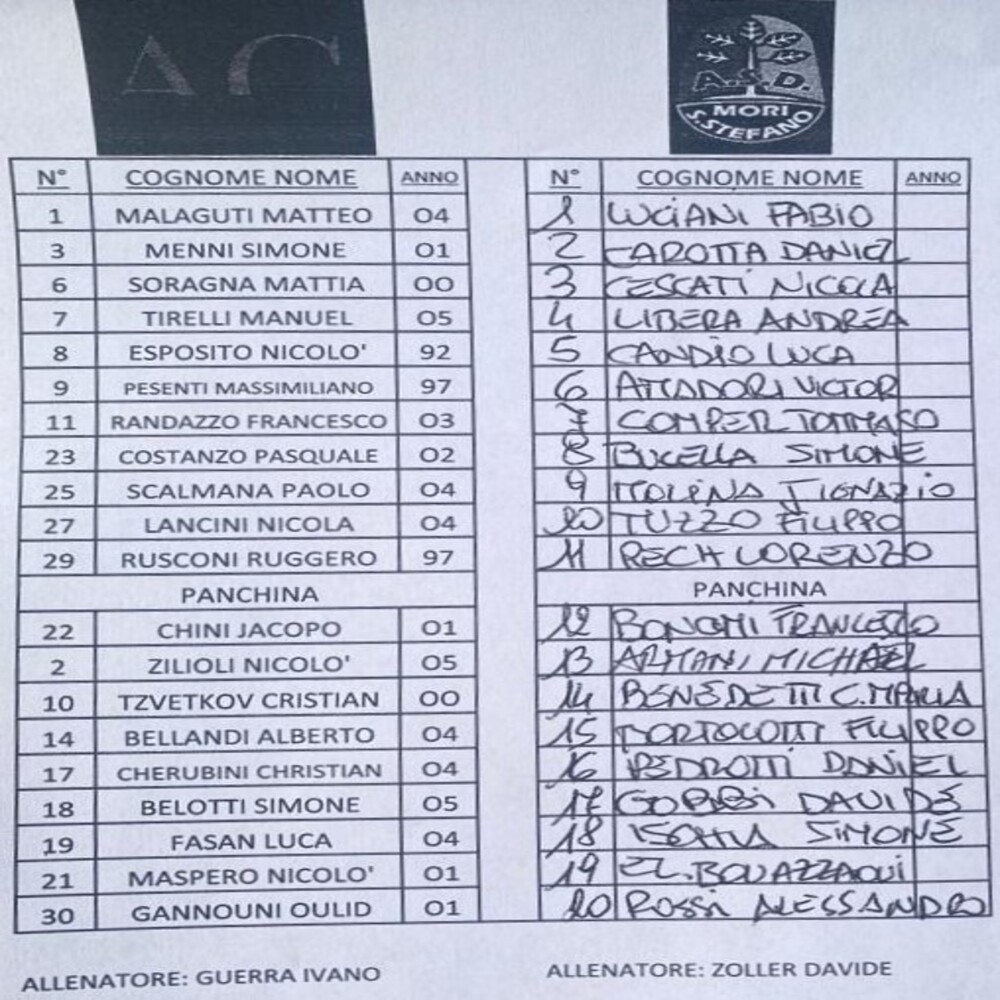 AC
A.S.D.
MORI
S.STEFANO
N° COGNOME NOME ANNO N° COGNOME NOME ANNO
1 MALAGUTI MATTEO 04 1 LUCIANI FABIO
3 MENNI SIMONE 01 2 CAROTTA DANIEL
6 SORAGNA MATTIA 00 3 CESCATI NICOLA
7 TIRELLI MANUEL 05 4 LIBERA ANDREA
8 ESPOSITO NICOLO' 92 5 CANDIO LUCA
9 PESENTI MASSIMILIANO 97 6 VICTOR
11 RANDAZZO FRANCESCO 03 7 COMPER TOMMASO
23 COSTANZO PASQUALE 02 8 BUCELLA SIMONE
25 SCALMANA PAOLO 04 9 MOLINA IGNAZIO
27 LANCINI NICOLA 04 10 TUZZO FILIPPO
29 RUSCONI RUGGERO 97 11 RECH LORENZO
PANCHINA PANCHINA
22 CHINI JACOPO 01 12 FRANCESCO
2 ZILIOLI NICOLO' 05 13 ARMANI MICHAEL
10 TZVETKOV CRISTIAN 00 14 BENEDETTI C.MARIA
14 BELLANDI ALBERTO 04 15 BORTOLOTTI FILIPPO
17 CHERUBINI CHRISTIAN 04 16 PEDROTTI DANIEL
18 BELOTTI SIMONE 05 17 GOBBI DAVIDE
19 FASAN LUCA 04 18 SIMONE
21 MASPERO NICOLO' 01 19 EL.BOUAZZAOUI
30 GANNOUNI OULID 01 20 ROSSI ALESSANDRO
ALLENATORE: GUERRA IVANO ALLENATORE: ZOLLER DAVIDE